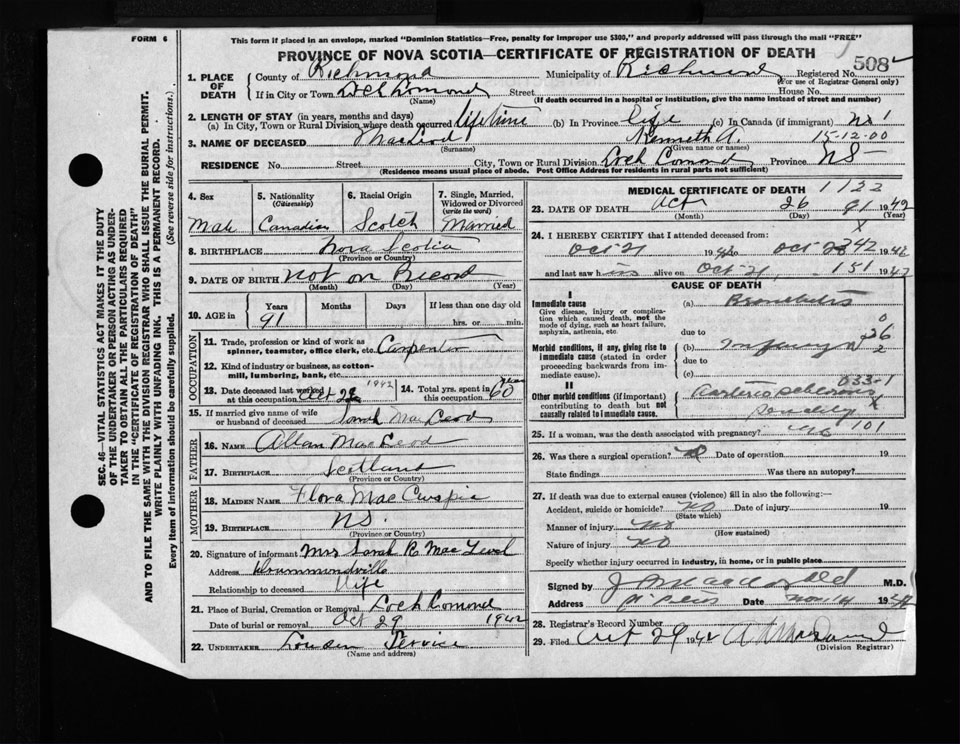 FORM 6
This form if placed in an envelope, marked "Dominion Statistics—Free, penalty for improper use $300," and properly addressed will pass through the mail "FREE"
PROVINCE OF NOVA SCOTIA—CERTIFICATE OF REGISTRATION OF DEATH
508
1. PLACE OF DEATH
County of Richmond Municipality of Richmond Registered No.
(For use of Registrar General only)
If in City or Town Loch Lomond Street House No.
(Name) (If death occurred in a hospital or institution, give the name instead of street and number)
2. LENGTH OF STAY (in years, months and days)
(a) In City, Town or Rural Division where death occurred lifetime (b) In Province life (c) In Canada (if immigrant) no
3. NAME OF DECEASED MacLeod Kenneth A. 15-12-00
(Surname) (Given name or names)
RESIDENCE No. Street. City, Town or Rural Division Loch Lomond Province NS
(Residence means usual place of abode. Post Office Address for residents in rural parts not sufficient)
4. Sex Male
5. Nationality (Citizenship) Canadian
6. Racial Origin Scotch
7. Single, Married, Widowed or Divorced (write the word) Married
8. BIRTHPLACE Nova Scotia
(Province or Country)
9. DATE OF BIRTH Not on Record
(Month) (Day) (Year)
10. AGE in Years Months Days If less than one day old
91 hrs. or min.
OCCUPATION
11. Trade, profession or kind of work as spinner, teamster, office clerk, etc. Carpenter
12. Kind of industry or business, as cotton-mill, lumbering, bank, etc.
13. Date deceased last worked at this occupation Oct 1942
14. Total yrs. spent in this occupation 60
15. If married give name of wife or husband of deceased Sarah MacLeod
FATHER
16. NAME Allan MacLeod
17. BIRTHPLACE Scotland
(Province or Country)
MOTHER
18. MAIDEN NAME Flora Mac
19. BIRTHPLACE NS.
(Province or Country)
20. Signature of informant Mrs Sarah R. MacLeod
Address
Relationship to deceased Wife
21. Place of Burial, Cremation or Removal Loch Lomond
Date of burial or removal Oct 29 1942
22. UNDERTAKER Service
(Name and address)
MEDICAL CERTIFICATE OF DEATH
23. DATE OF DEATH Oct 26 1942
(Month) (Day) (Year)
24. I HEREBY CERTIFY that I attended deceased from:
Oct 21 1942 to Oct 1942
and last saw h im alive on Oct 21, 1942
CAUSE OF DEATH
I
Immediate cause
Give disease, injury or complication which caused death, not the mode of dying, such as heart failure, asphyxia, asthenia, etc.
(a) Bronchitis
due to
Morbid conditions, if any, giving rise to immediate cause (stated in order proceeding backwards from immediate).
(b)
due to
(c)
II
Other morbid conditions (if important) contributing to death but not causally related to immediate cause.
033-1
25. If a woman, was the death associated with pregnancy? 101
26. Was there a surgical operation? Date of operation 19
State findings Was there an autopsy?
27. If death was due to external causes (violence) fill in also the following:
Accident, suicide or homicide? no Date of injury 19
(State which)
Manner of injury no
(How sustained)
Nature of injury no
Specify whether injury occurred in industry, in home, or in public place
Signed by M.D.
Address Date Nov 14 19
28. Registrar's Record Number
29. Filed Oct 29 1942
(Division Registrar)
SEC. 46—VITAL STATISTICS ACT MAKES IT THE DUTY
OF THE UNDERTAKER OR PERSON ACTING AS UNDER-
TAKER TO OBTAIN ALL THE PARTICULARS REQUIRED
IN THE "CERTIFICATE OF REGISTRATION OF DEATH"
AND TO FILE THE SAME WITH THE DIVISION REGISTRAR WHO SHALL ISSUE THE BURIAL PERMIT.
WRITE PLAINLY WITH UNFADING INK. THIS IS A PERMANENT RECORD.
Every item of information should be carefully supplied. (See reverse side for instructions.)